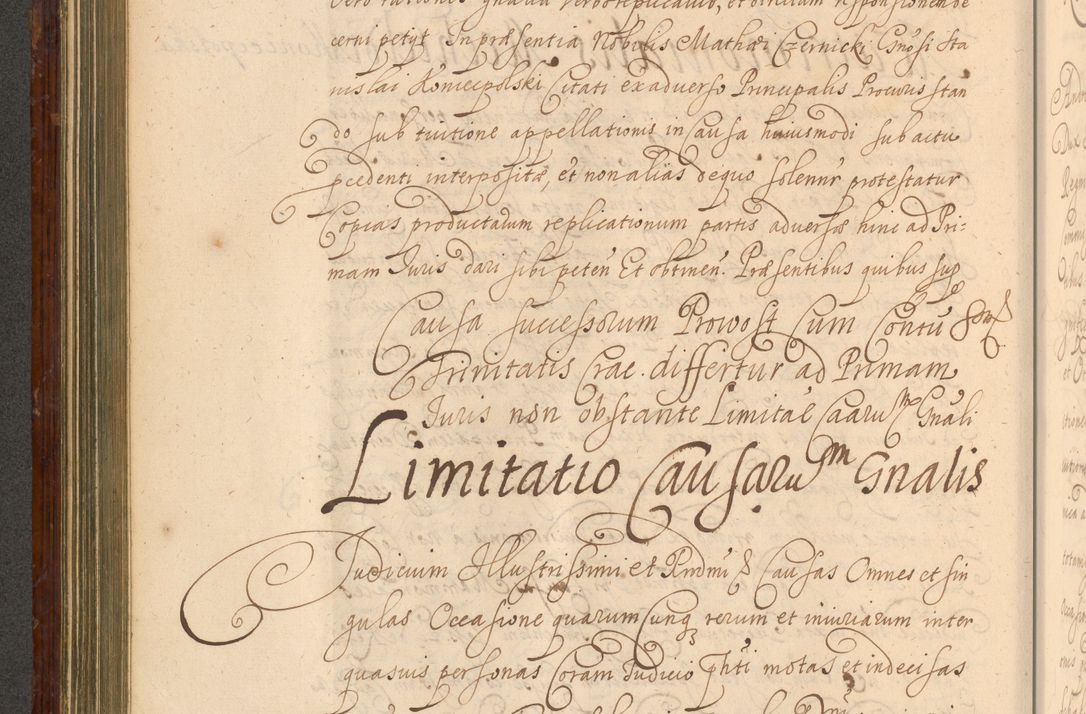 vero rationes gnades verboreplicavit, et directum responsionem de
cerni petyt In præsentia Nobilis Mathæi Czernicki Gnosi Sta
nislai Koniecpolski Citati ex adverso Principalis Procuris stan
do sub tuitione appellationis in Causa huiusmodi sub actu
pcedenti interpositæ, et non aliàs de quo solennr protestatur
Copias productarum replicationum partis adversæ hinc ad Pri:
mam Juris dari sibi peten Et obtinen. Præsentibus quibus sup
Causa successorum Prowost Cum Contu
Trinitatis Crac. differtur ad Primam
Juris non obstante Limitae Caarum Gnali
Limitatio Causarum Gnalis
Judicium Illustrissimi et Rndmi & Causas Omnes et sin
gulas Occasione quarumCunq rerum et iniuriarum inter
quasvis personas Coram Judicio phti motas et indecisas